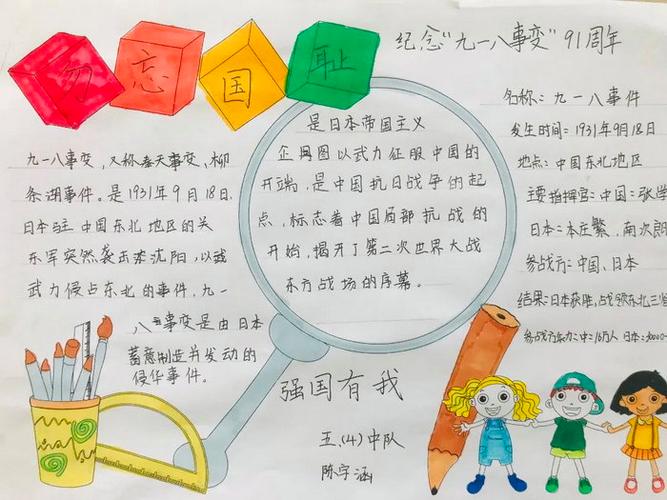 勿忘国耻
纪念“九一八事变”91周年
九一八事变,又称奉天事变、柳
条湖事件。是1931年9月18日,
日本驻中国东北地区的关
东军突然袭击沈阳,以
武力侵占东北的事件,九一
八事变是由日本
蓄意制造并发动的
侵华事件。
是日本帝国主义
企图以武力征服中国的
开端,是中国抗日战争的起
点,标志着中国局部抗战的
开始,揭开了第二次世界大战
东方战场的序幕。
名称:九一八事件
发生时间:1931年9月18日
地点:中国东北地区
主要指挥官:中国:张学
日本:本庄繁,南次朗
参战方:中国、日本
结果:日本获胜,占领东北三
参战方兵力:中:16万人 日本:
强国有我
五.(4)中队
陈宇涵